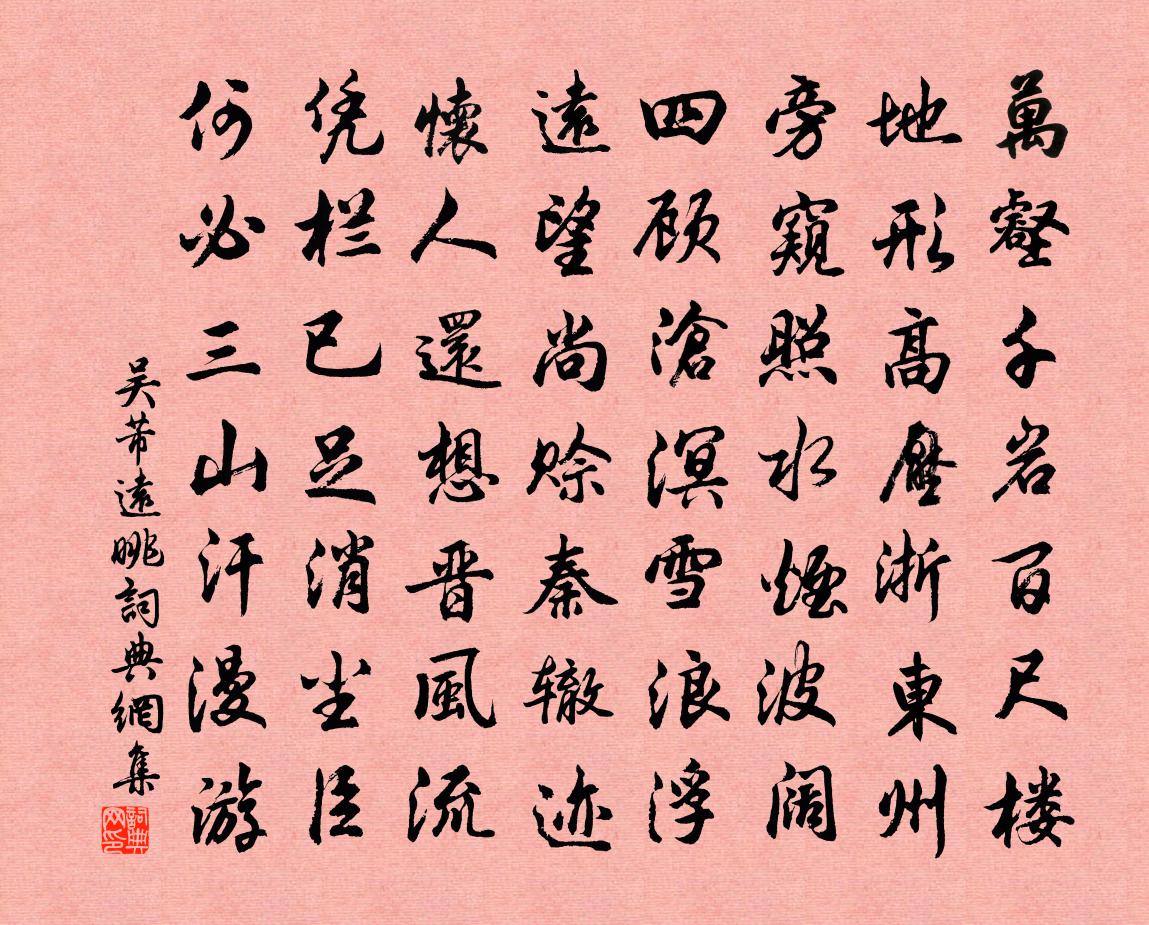 萬壑千岩百尺楼
地形高壓浙東州
旁窺照水煙波阔
四顾滄溟雪浪浮
遠望尚赊秦辙迹
懷人還想晋風流
凭栏已足消尘臣
何必三山汗漫游
吴芾遠眺詞典網集
詞典网印